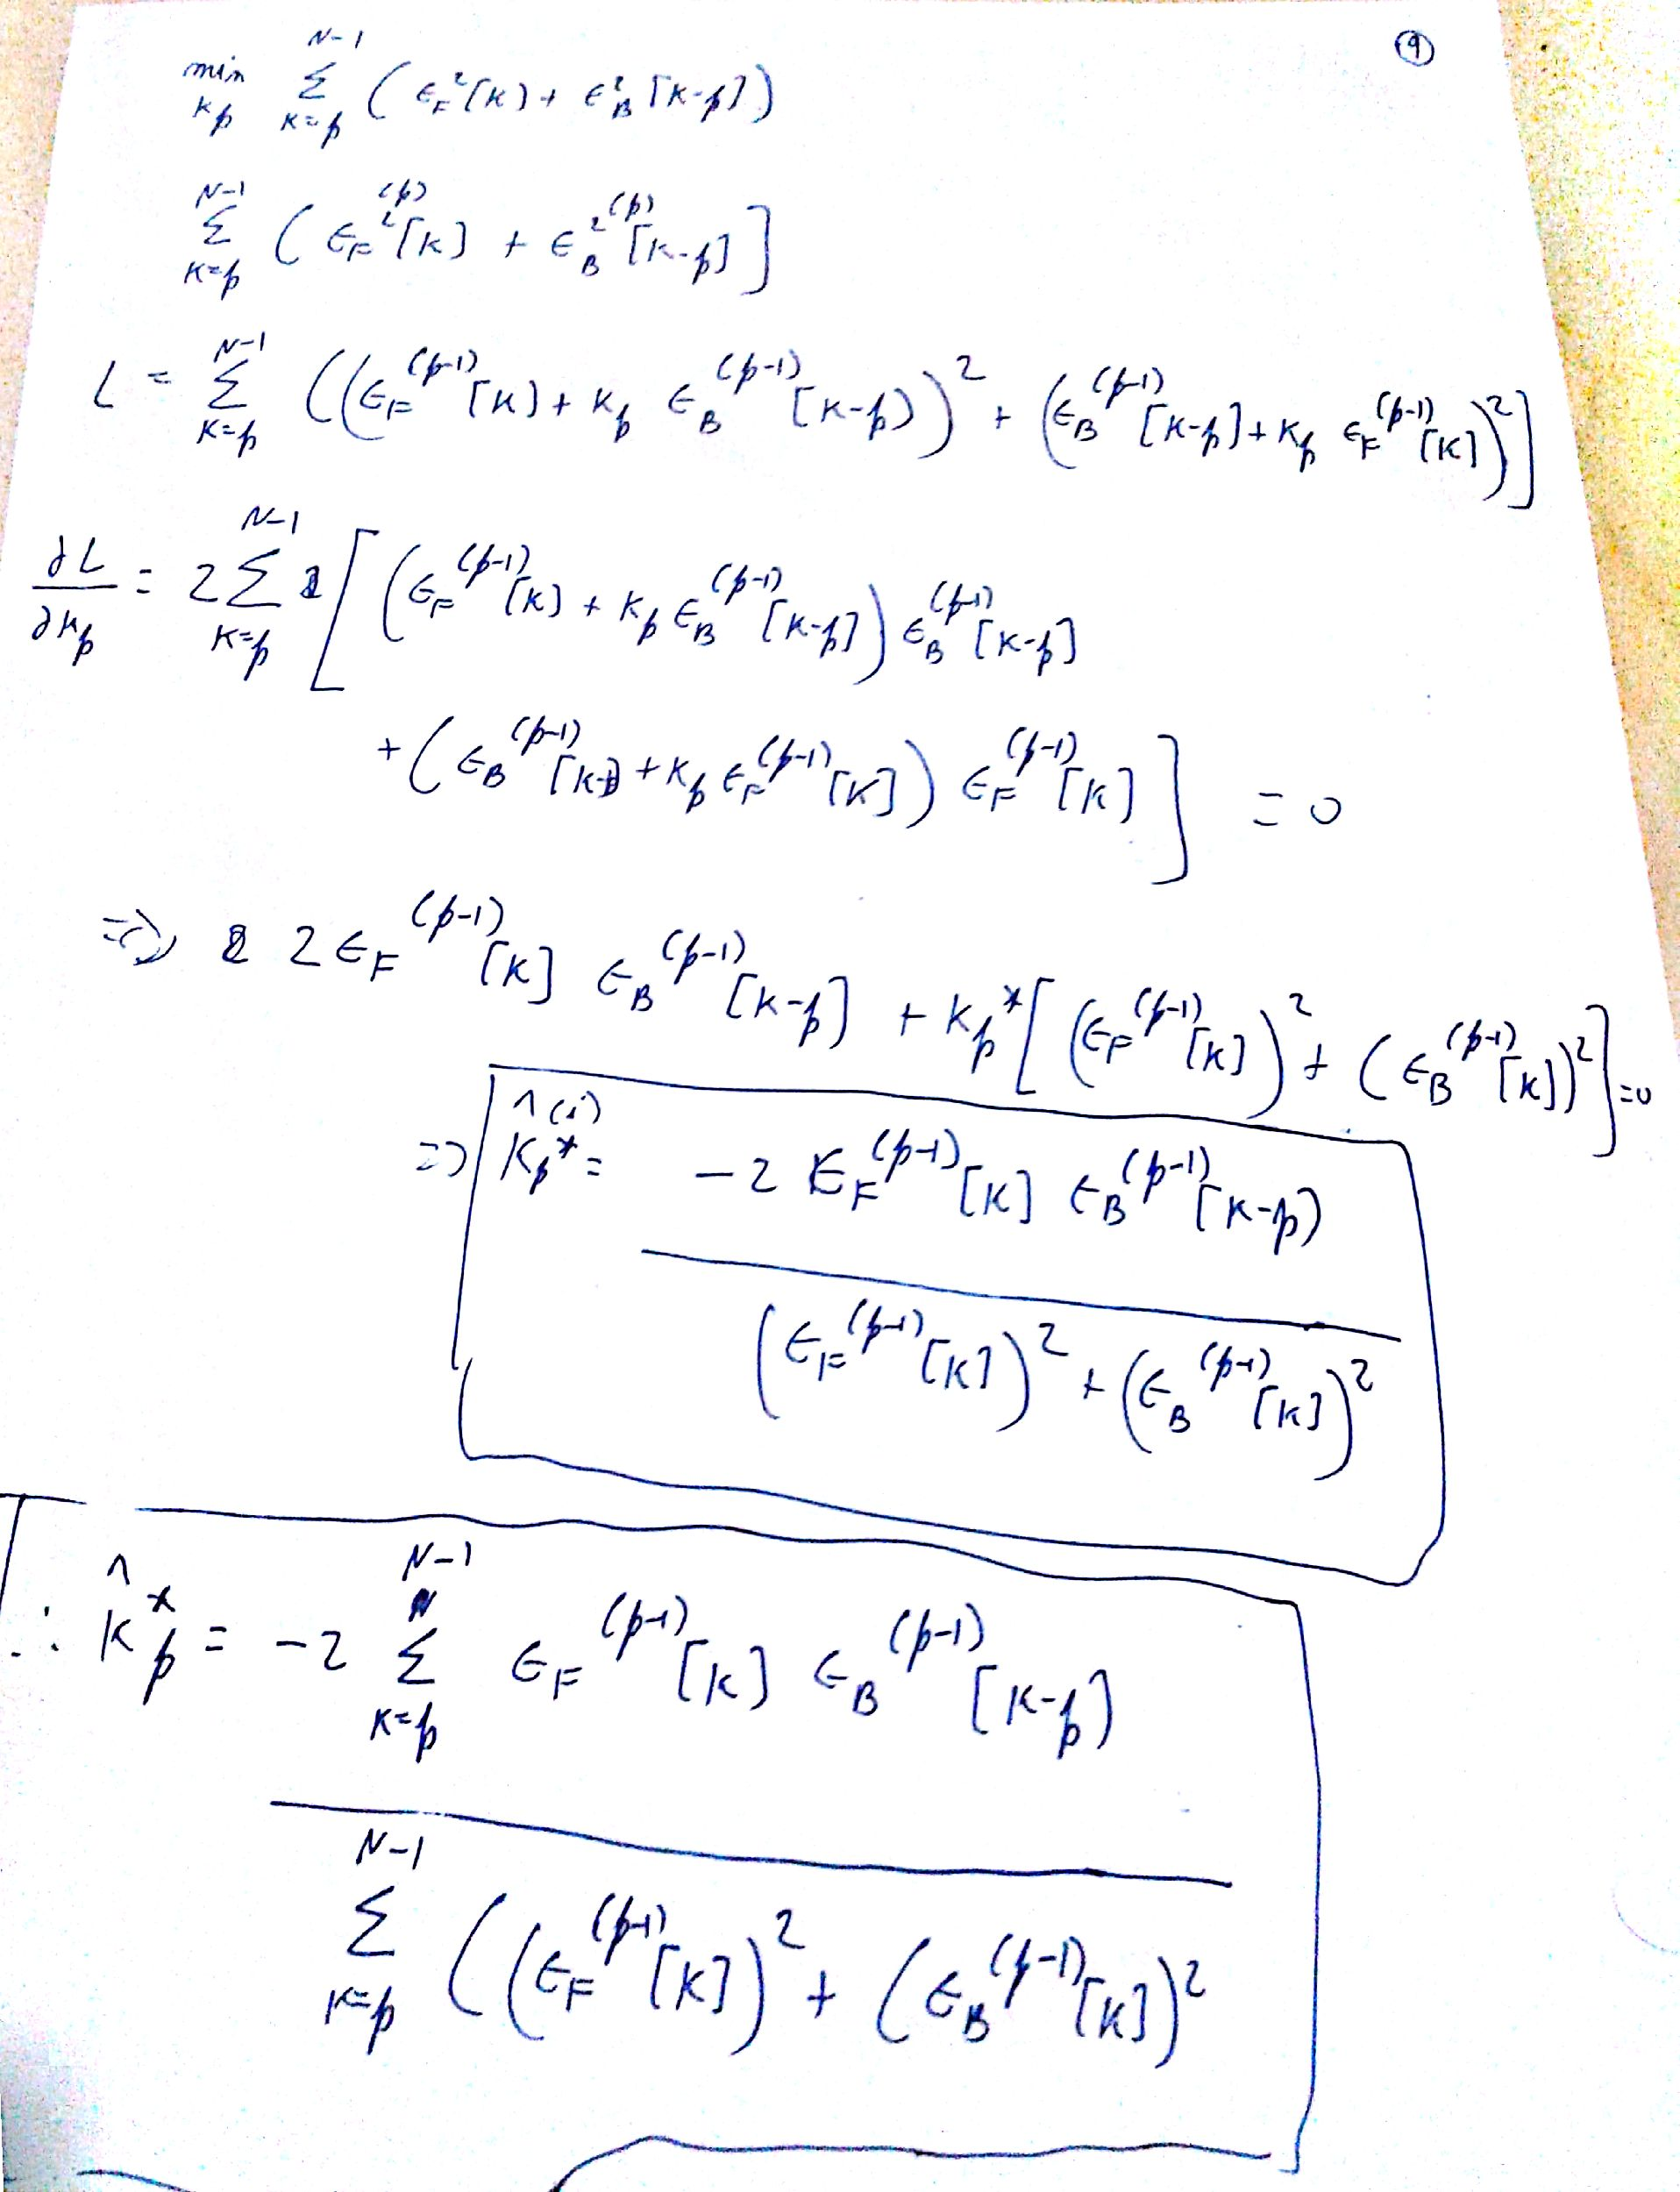 ⑨
min_{κ_p} Σ_{k=p}^{N-1} ( ε_F²[k] + ε_B²[k-p] )
Σ_{k=p}^{N-1} ( ε_F^{2 (p)}[k] + ε_B^{2 (p)}[k-p] ]
L = Σ_{k=p}^{N-1} ( ( ε_F^{(p-1)}[k] + κ_p ε_B^{(p-1)}[k-p) )² + ( ε_B^{(p-1)}[k-p] + κ_p ε_F^{(p-1)}[k] )² ]
∂L/∂κ_p = 2 Σ_{k=p}^{N-1} [ ( ε_F^{(p-1)}[k] + κ_p ε_B^{(p-1)}[k-p] ) ε_B^{(p-1)}[k-p]
+ ( ε_B^{(p-1)}[k-p] + κ_p ε_F^{(p-1)}[k] ) ε_F^{(p-1)}[k] ] = 0
⇒ 2 ε_F^{(p-1)}[k] ε_B^{(p-1)}[k-p] + κ_p^* [ ( ε_F^{(p-1)}[k] )² + ( ε_B^{(p-1)}[k] )² ] = 0
⇒ κ̂_p^{*(i)} = -2 ε_F^{(p-1)}[k] ε_B^{(p-1)}[k-p)
( ε_F^{(p-1)}[k] )² + ( ε_B^{(p-1)}[k] )²
∴ κ̂_p^* = -2 Σ_{k=p}^{N-1} ε_F^{(p-1)}[k] ε_B^{(p-1)}[k-p)
Σ_{k=p}^{N-1} ( ( ε_F^{(p-1)}[k] )² + ( ε_B^{(p-1)}[k] )²